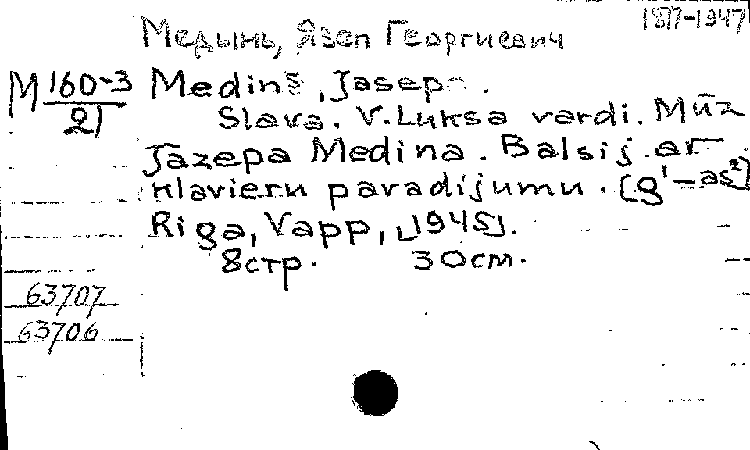 1877-1947
Медынь, Язеп Георгиевич
М 160-3
21
Medinš, Jaseps.
Slava. V. Luksa vardi. Mūz
Jazepa Medina. Balsij ar
klavieru pavadijumu. [g'-as²]
Riga, Vapp, [1945].
8 стр. 30 см.
63707
63706